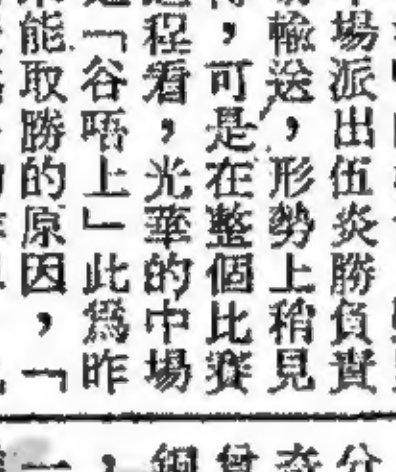 場派出伍炎勝負責
輸送，形勢上稍見
，可是在整個比賽
程看，光華的中場
「谷唔上」此爲昨
能取勝的原因，「